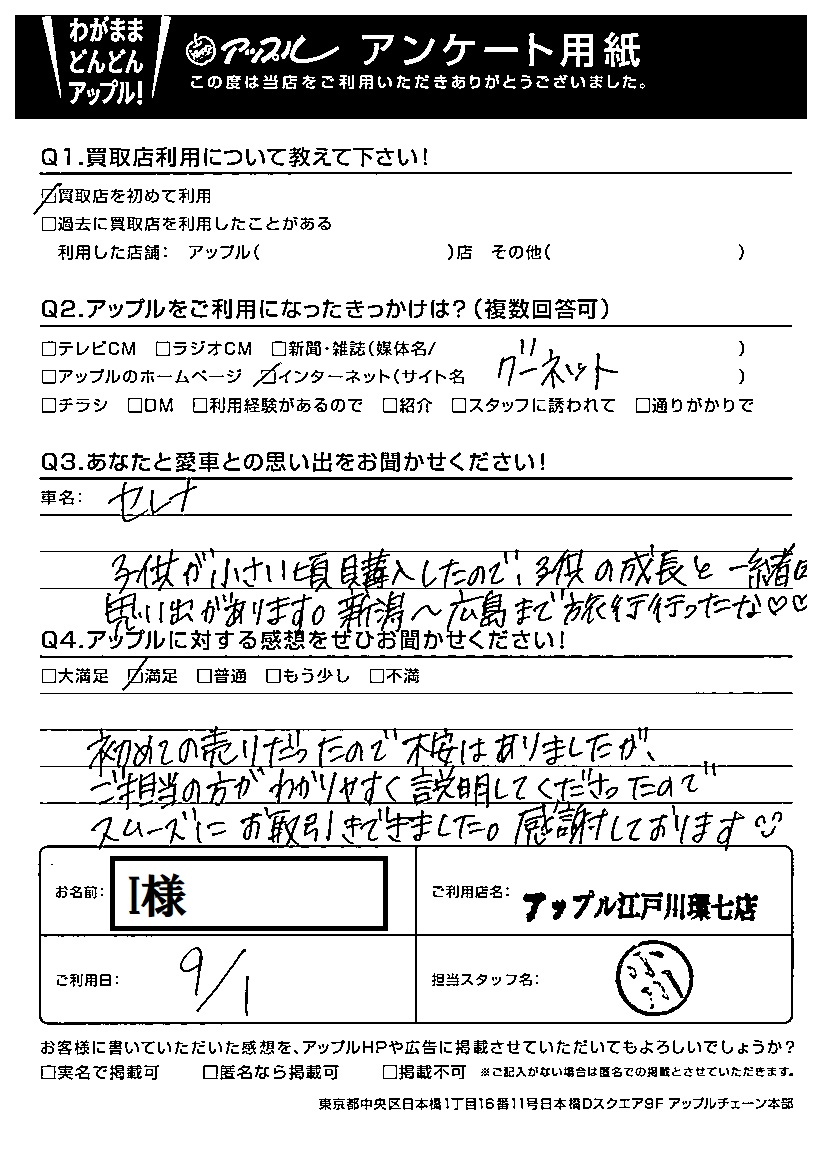 わがまま
どんどん
アップル!
アップル アンケート用紙
この度は当店をご利用いただきありがとうございました。
Q1.買取店利用について教えて下さい!
☑買取店を初めて利用
□過去に買取店を利用したことがある
利用した店舗: アップル( )店 その他( )
Q2.アップルをご利用になったきっかけは?(複数回答可)
□テレビCM □ラジオCM □新聞・雑誌(媒体名/ )
□アップルのホームページ ☑インターネット(サイト名 グーネット )
□チラシ □DM □利用経験があるので □紹介 □スタッフに誘われて □通りがかりで
Q3.あなたと愛車との思い出をお聞かせください!
車名: セレナ
子供が小さい頃購入したので、子供の成長と一緒の
思い出があります。新潟〜広島まで旅行行ったな♡♡
Q4.アップルに対する感想をぜひお聞かせください!
□大満足 ☑満足 □普通 □もう少し □不満
初めての売りだったので不安はありましたが、
ご担当の方がわかりやすく説明してくださったので
スムーズにお取引きできました。感謝しております
お名前: I様
ご利用店名: アップル江戸川環七店
ご利用日: 9/1
担当スタッフ名:
お客様に書いていただいた感想を、アップルHPや広告に掲載させていただいてもよろしいでしょうか?
□実名で掲載可 □匿名なら掲載可 □掲載不可 ※ご記入がない場合は匿名での掲載とさせていただきます。
東京都中央区日本橋1丁目16番11号日本橋Dスクエア9F アップルチェーン本部